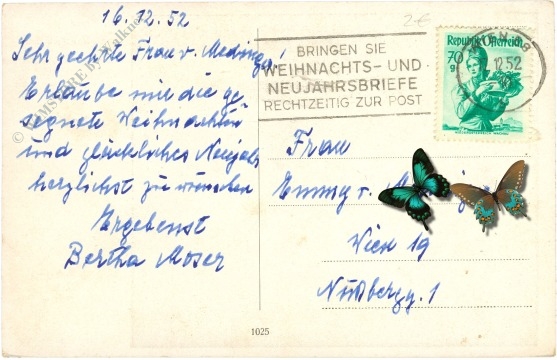 16. 12. 52
Sehr geehrte Frau v. Medinga!
Erlaube mir die ge
segnete Weihnachten
und glückliches Neujahr
herzlichst zu wünschen
Ergebenst
Bertha Moser
2.-€
BRINGEN SIE
WEIHNACHTS- UND
NEUJAHRSBRIEFE
RECHTZEITIG ZUR POST
Republik Österreich
70
g
12.52
Frau
Emmy v.
Wien 19
Nußbergg. 1
1025